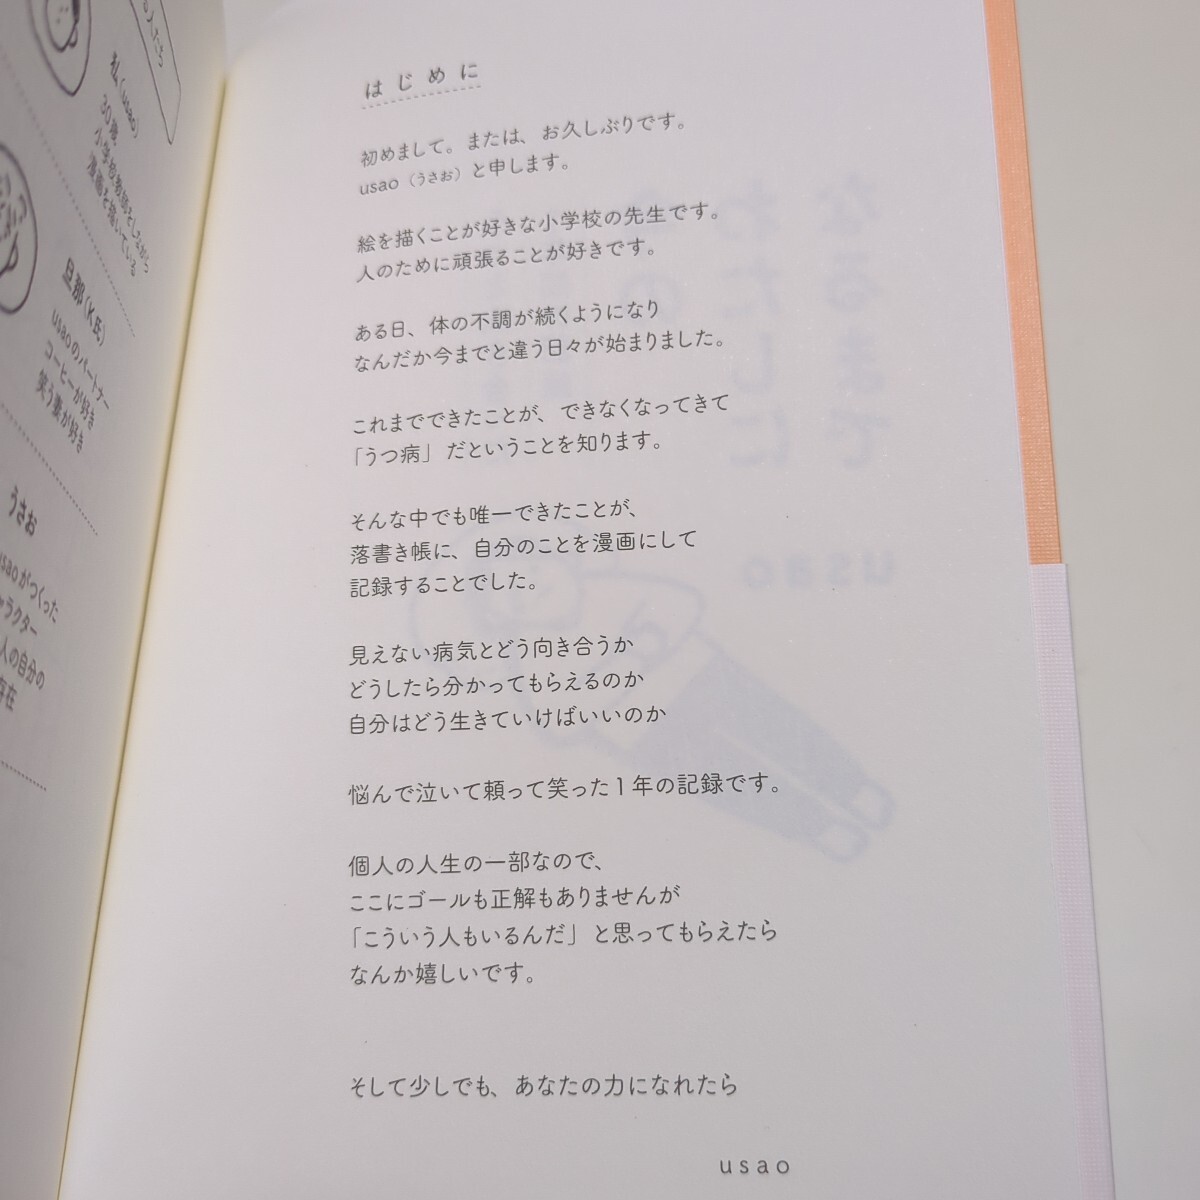 私（usao）
30歳。
小学校教師をしながら
漫画を描いている
旦那（K氏）
usaoのパートナー
コーヒーが好き
笑う妻が好き
うさお
usaoがつくった
ャラクター
人の自分の
存在
はじめに
初めまして。または、お久しぶりです。
usao（うさお）と申します。
絵を描くことが好きな小学校の先生です。
人のために頑張ることが好きです。
ある日、体の不調が続くようになり
なんだか今までと違う日々が始まりました。
これまでできたことが、できなくなってきて
「うつ病」だということを知ります。
そんな中でも唯一できたことが、
落書き帳に、自分のことを漫画にして
記録することでした。
見えない病気とどう向き合うか
どうしたら分かってもらえるのか
自分はどう生きていけばいいのか
悩んで泣いて頼って笑った1年の記録です。
個人の人生の一部なので、
ここにゴールも正解もありませんが
「こういう人もいるんだ」と思ってもらえたら
なんか嬉しいです。
そして少しでも、あなたの力になれたら
usao
なるまで
わたしに
usao